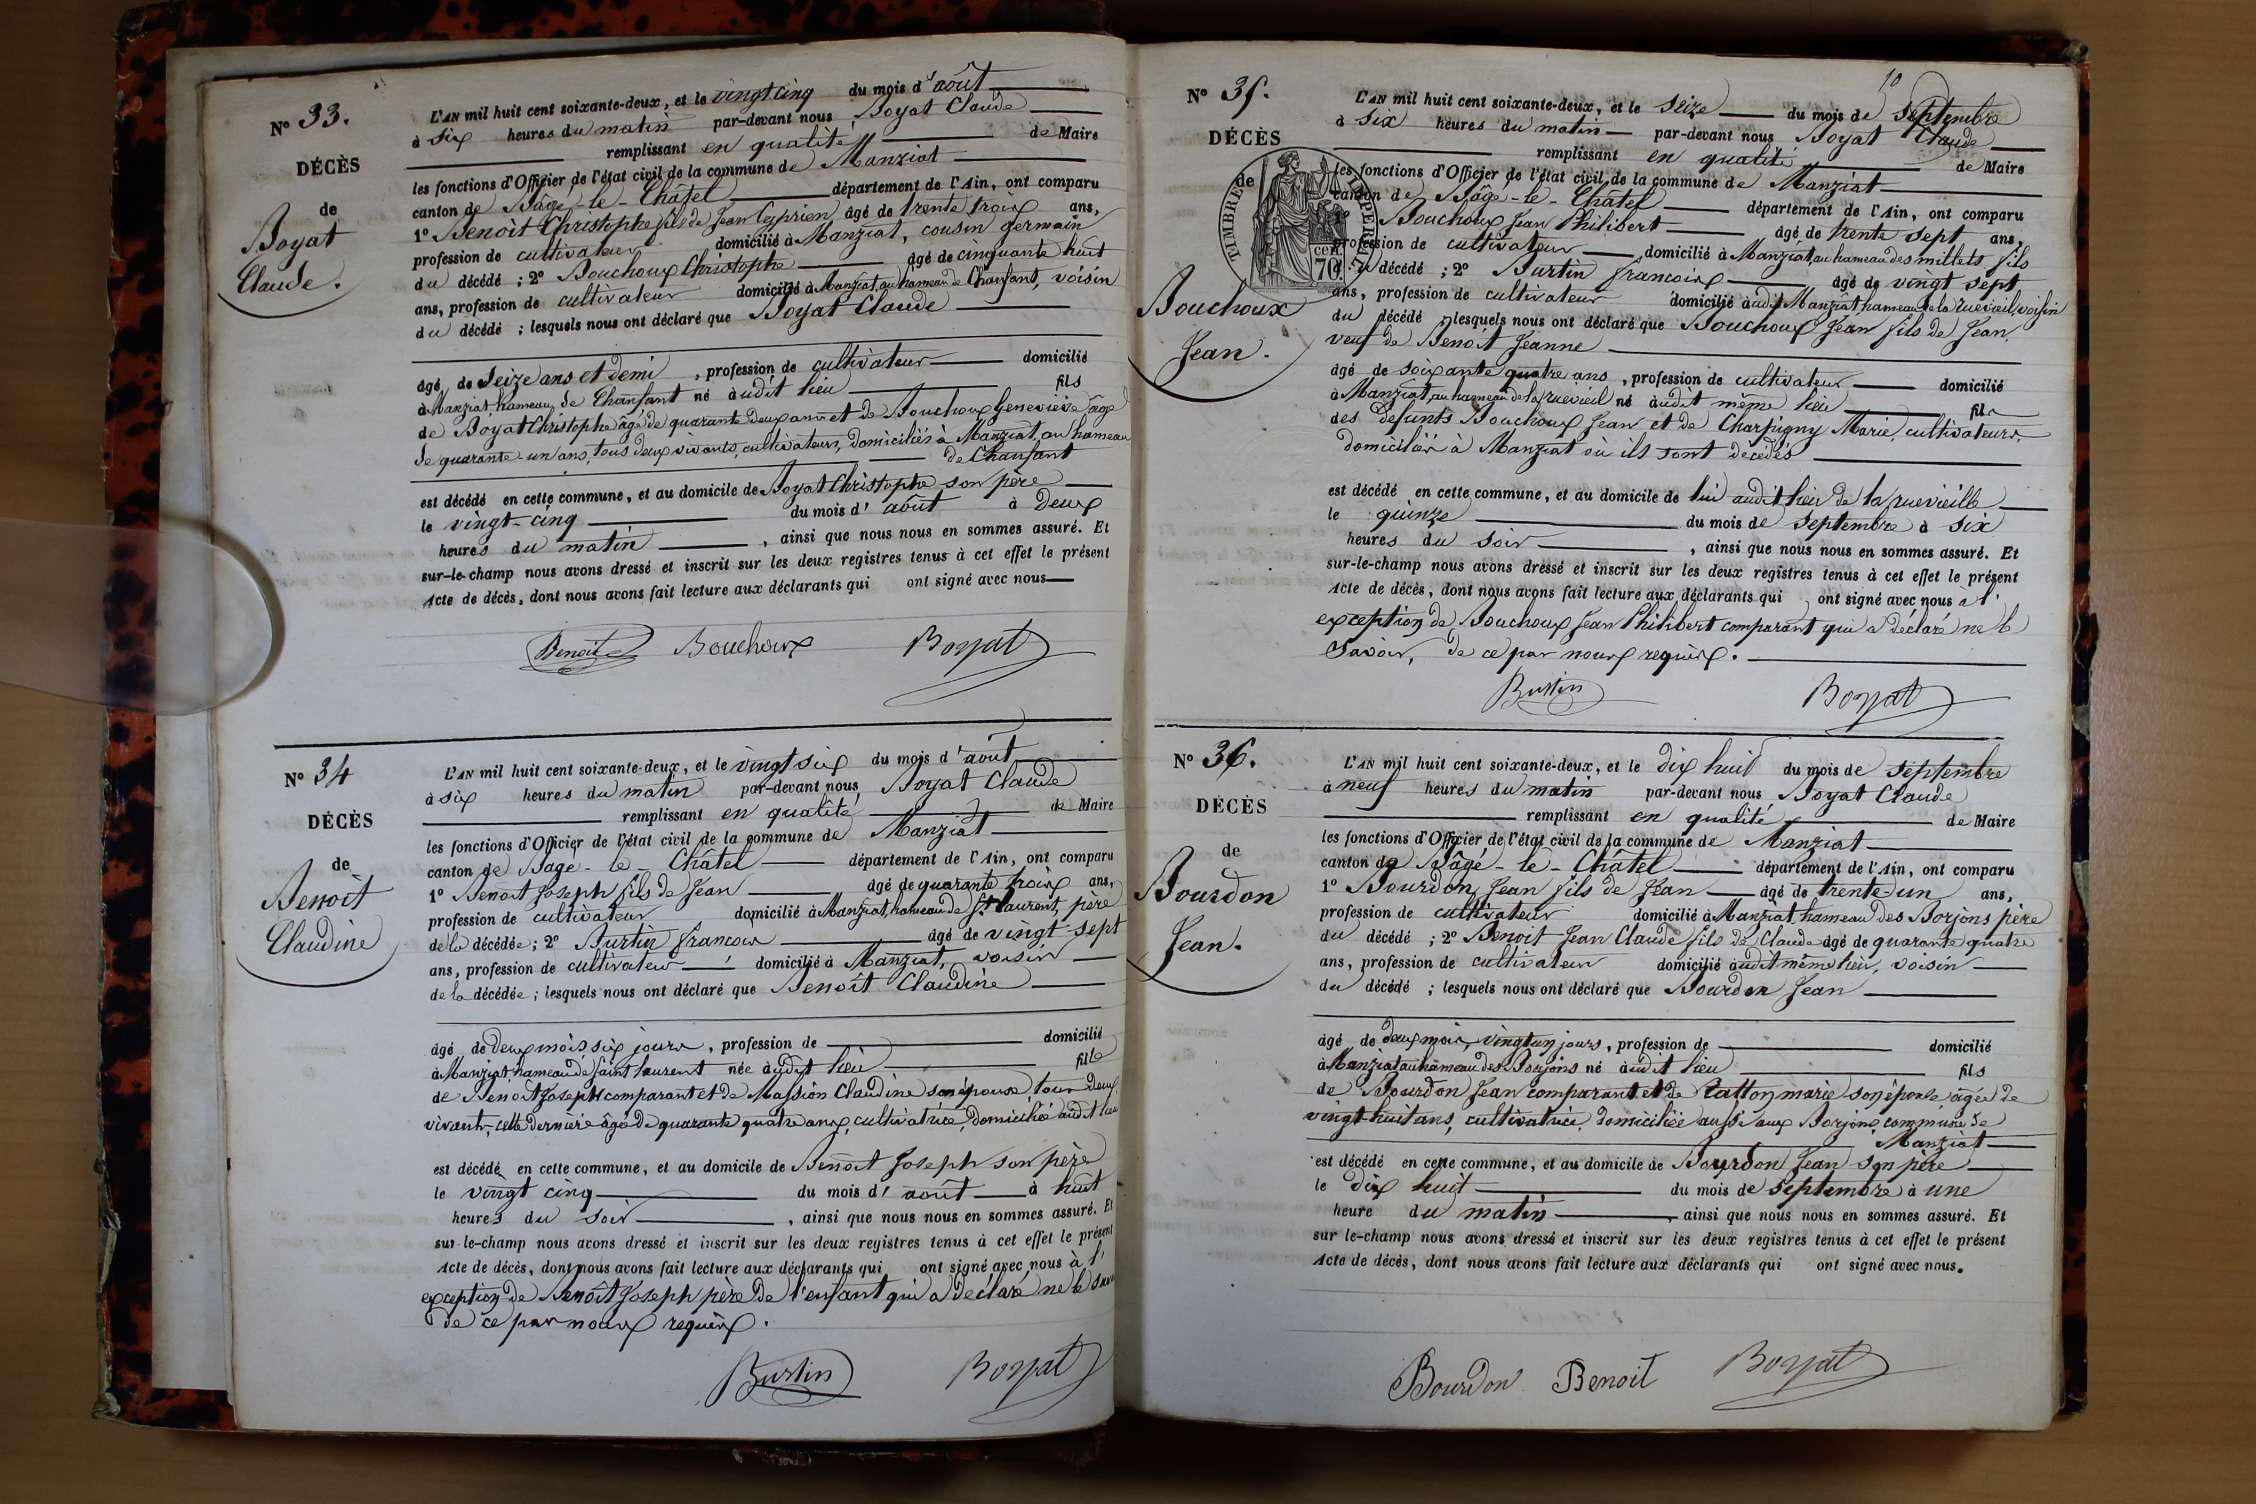 N° 33.
DÉCÈS
de
Boyat
Claude.
L'AN mil huit cent soixante-deux, et le vingt cinq du mois d'août
à six heures du matin par-devant nous Boyat Claude
remplissant en qualité de Maire
les fonctions d'Officier de l'état civil de la commune de Manziat
canton de Bâgé-le-Châtel département de l'Ain, ont comparu
1° Benoît Christophe fils de Jean Cyprien âgé de trente trois ans,
profession de cultivateur domicilié à Manziat, cousin germain
du décédé ; 2° Bouchoux Christophe âgé de cinquante huit
ans, profession de cultivateur domicilié à Manziat, au hameau de Chanfant, voisin
du décédé ; lesquels nous ont déclaré que Boyat Claude
âgé de seize ans et demi, profession de cultivateur domicilié
à Manziat, hameau de Chanfant né audit lieu fils
de Boyat Christophe âgé de quarante deux ans et de Bouchoux Geneviève âgée
de quarante-un ans, tous deux vivants, cultivateurs, domiciliés à Manziat, au hameau
de Chanfant
est décédé en cette commune, et au domicile de Boyat Christophe son père
le vingt-cinq du mois d'août à deux
heures du matin, ainsi que nous nous en sommes assuré. Et
sur-le-champ nous avons dressé et inscrit sur les deux registres tenus à cet effet le présent
Acte de décès, dont nous avons fait lecture aux déclarants qui ont signé avec nous
Benoit Bouchoux Boyat
N° 34
DÉCÈS
de
Benoît
Claudine
L'AN mil huit cent soixante-deux, et le vingt six du mois d'août
à six heures du matin par-devant nous Boyat Claude
remplissant en qualité de Maire
les fonctions d'Officier de l'état civil de la commune de Manziat
canton de Bagé-le-Châtel département de l'Ain, ont comparu
1° Benoit Joseph fils de Jean âgé de quarante trois ans,
profession de cultivateur domicilié à Manziat, hameau de St Laurent, père
de la décédée ; 2° Burtin françois âgé de vingt-sept
ans, profession de cultivateur domicilié à Manziat, voisin
de la décédée ; lesquels nous ont déclaré que Benoît Claudine
âgé de deux mois six jours, profession de domicilié
à Manziat, hameau de Saint laurent née audit lieu fille
de Benoit Joseph comparant et de Massion Claudine son épouse, tous deux
vivants, cette dernière âgée de quarante quatre ans, cultivatrice, domiciliée audit lieu
est décédé en cette commune, et au domicile de Benoit Joseph son père
le vingt cinq du mois d'août à huit
heures du soir, ainsi que nous nous en sommes assuré. Et
sur-le-champ nous avons dressé et inscrit sur les deux registres tenus à cet effet le présent
Acte de décès, dont nous avons fait lecture aux déclarants qui ont signé avec nous à l'
exception de Benoît Joseph père de l'enfant qui a déclaré ne le
de ce par nous requis.
Burtin Boyat
10
N° 35.
DÉCÈS
de
TIMBRE IMPERIAL
70 cent.
Bouchoux
Jean.
L'AN mil huit cent soixante-deux, et le seize du mois de septembre
à six heures du matin par-devant nous Boyat Claude
remplissant en qualité de Maire
les fonctions d'Officier de l'état civil de la commune de Manziat
canton de Bâgé-le-Châtel département de l'Ain, ont comparu
1° Bouchoux Jean Philibert âgé de trente sept ans,
profession de cultivateur domicilié à Manziat, au hameau des millets fils
du décédé ; 2° Burtin françois âgé de vingt sept
ans, profession de cultivateur domicilié audit Manziat hameau de la ruevieil, voisin
du décédé ; lesquels nous ont déclaré que Bouchoux Jean fils de Jean,
veuf de Benoit Jeanne
âgé de soixante quatre ans, profession de cultivateur domicilié
à Manziat, au hameau de la ruevieil né audit même lieu fils
des défunts Bouchoux Jean et de Charpigny Marie, cultivateurs,
domiciliés à Manziat où ils sont décédés
est décédé en cette commune, et au domicile de lui audit lieu de la ruevieille
le quinze du mois de septembre à six
heures du soir, ainsi que nous nous en sommes assuré. Et
sur-le-champ nous avons dressé et inscrit sur les deux registres tenus à cet effet le présent
Acte de décès, dont nous avons fait lecture aux déclarants qui ont signé avec nous à l'
exception de Bouchoux Jean Philibert comparant qui a déclaré ne le
savoir, de ce par nous requis.
Burtin Boyat
N° 36.
DÉCÈS
de
Bourdon
Jean.
L'AN mil huit cent soixante-deux, et le dix huit du mois de septembre
à neuf heures du matin par-devant nous Boyat Claude
remplissant en qualité de Maire
les fonctions d'Officier de l'état civil de la commune de Manziat
canton de Bâgé-le-Châtel département de l'Ain, ont comparu
1° Bourdon Jean fils de Jean âgé de trente-un ans,
profession de cultivateur domicilié à Manziat hameau des Borjons père
du décédé ; 2° Benoit Jean Claude fils de Claude âgé de quarante quatre
ans, profession de cultivateur domicilié audit même lieu, voisin
du décédé ; lesquels nous ont déclaré que Bourdon Jean
âgé de deux mois, vingt un jours, profession de domicilié
à Manziat au hameau des Borjons né audit lieu fils
de Bourdon Jean comparant et de Catton marie son épouse âgée de
vingt-huit ans, cultivatrice, domiciliée aussi aux Borjons, commune de
Manziat
est décédé en cette commune, et au domicile de Bourdon Jean son père
le dix huit du mois de septembre à une
heure du matin, ainsi que nous nous en sommes assuré. Et
sur-le-champ nous avons dressé et inscrit sur les deux registres tenus à cet effet le présent
Acte de décès, dont nous avons fait lecture aux déclarants qui ont signé avec nous.
Bourdon Benoit Boyat